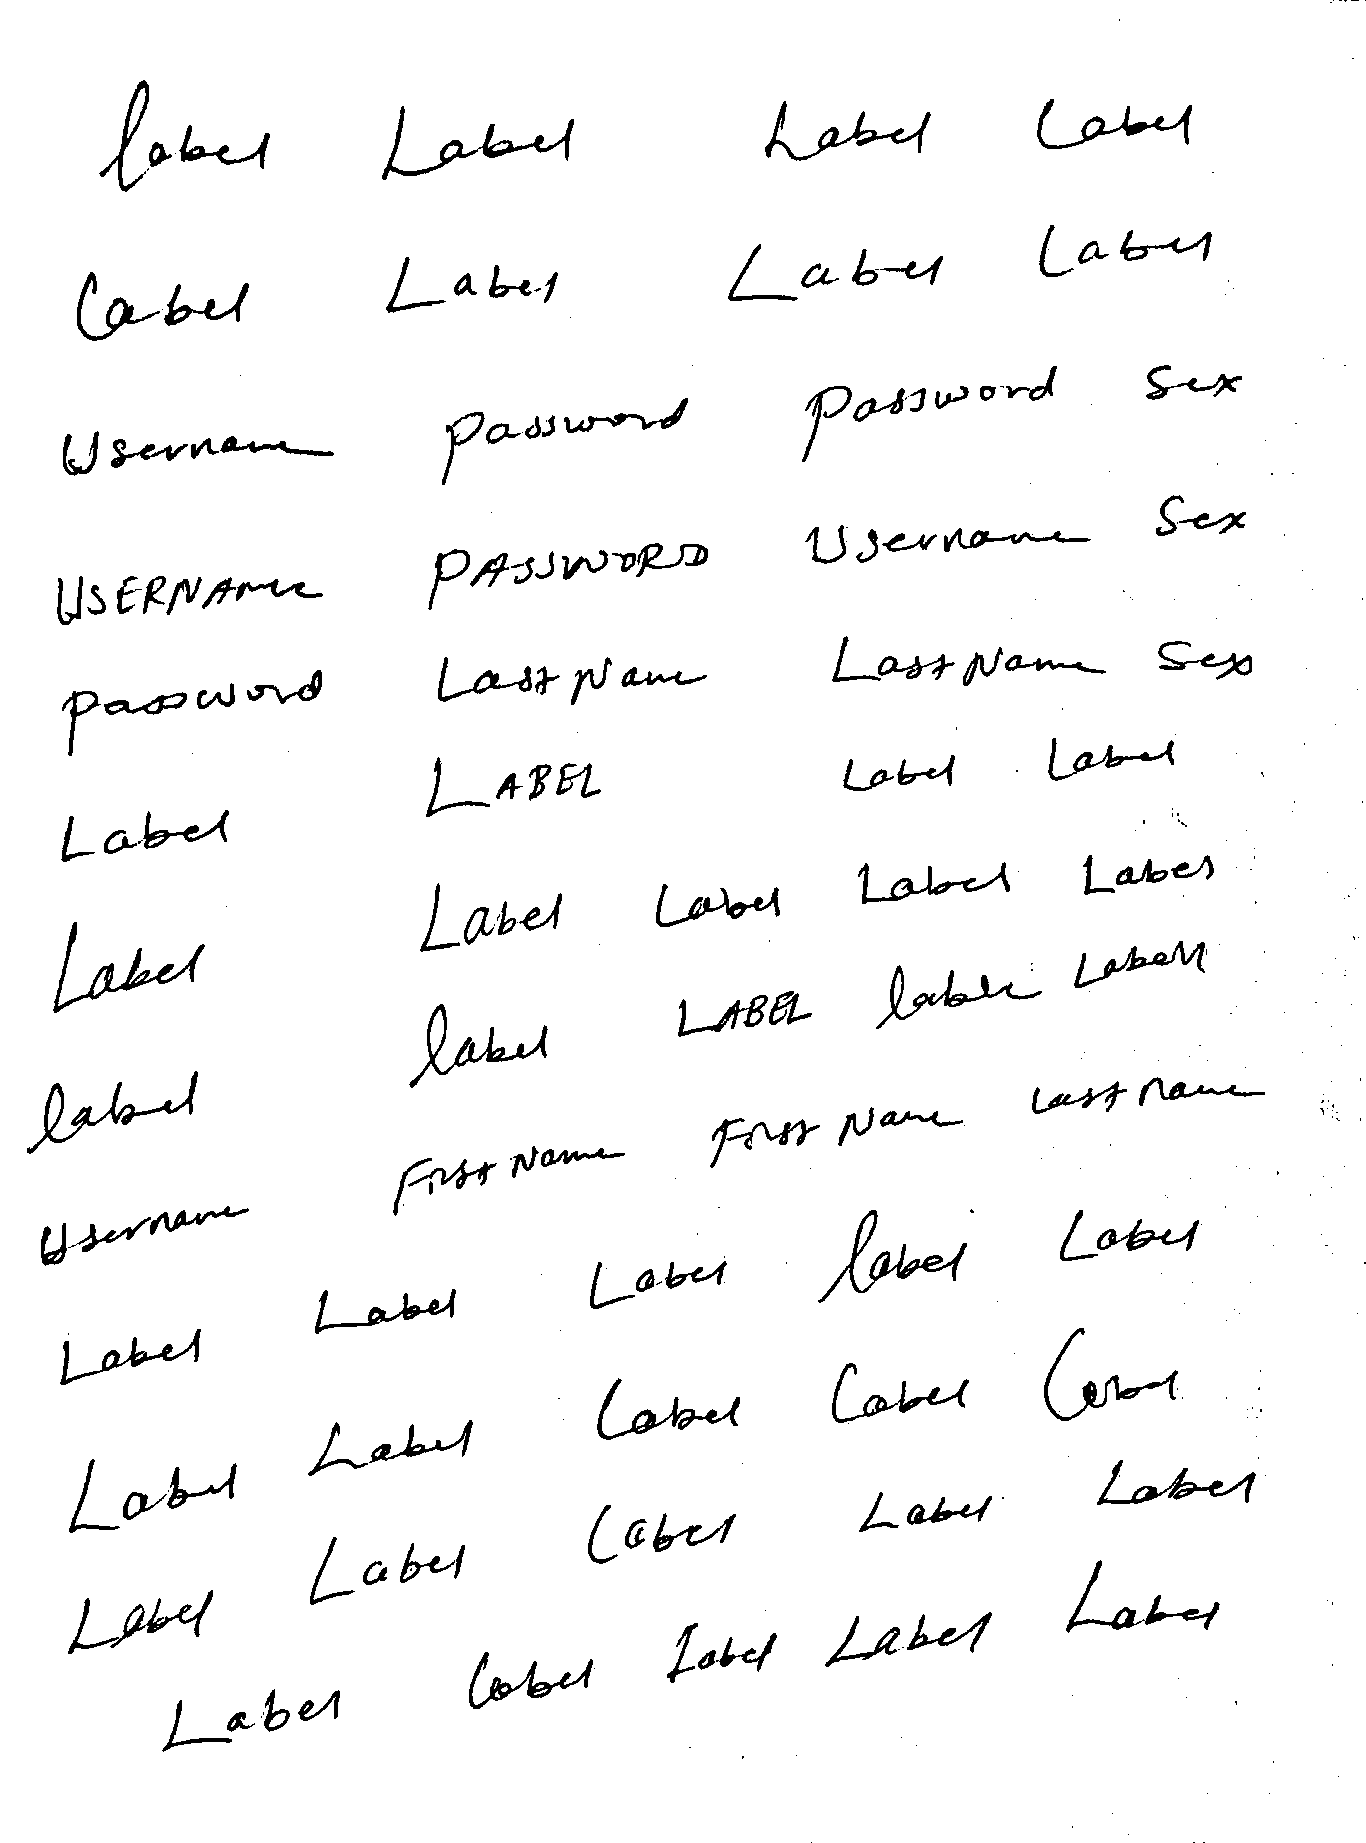 label Label Label Label
Label Label Label Label
Username Password Password Sex
USERNAME PASSWORD Username Sex
Password Last Name Last Name Sex
Label LABEL Label Label
Label Label Label Label Label
label label LABEL lable Label
Username First Name First Name Last name
Label Label Label label Label
Label Label Label Label Label
Label Label Label Label Label
Label Label Label Label Label